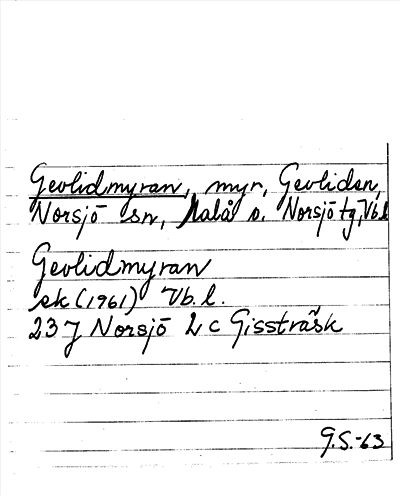 Gevlidmyran, myr, Gevliden,
Norsjö sn, Malå o. Norsjö tg, Vb.l
Gevlidmyran
ek (1961) Vb. l.
23 J Norsjö 2 c Gissträsk
G.S.-63